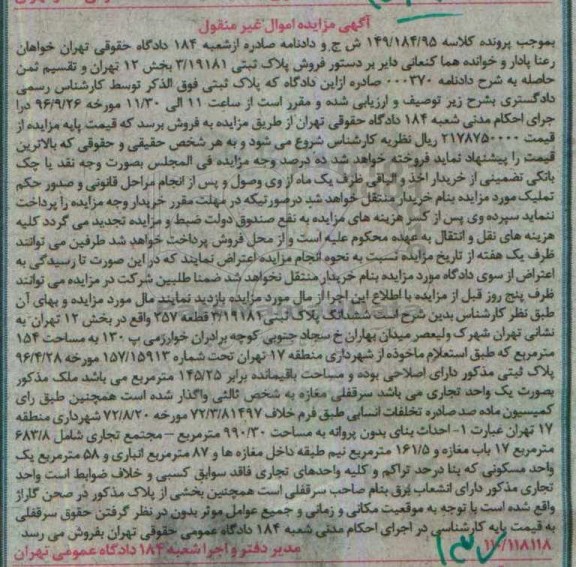 آگهی مزایده اموال غیر منقول
بموجب پرونده کلاسه ۱۴۹/۱۸۴/۹۵ ش ح و دادنامه صادره ازشعبه ۱۸۴ دادگاه حقوقی تهران خواهان
رعنا پادار و خوانده هما کنعانی دایر بر دستور فروش پلاک ثبتی ۳/۱۹۱۸۱ بخش ۱۲ تهران و تقسیم ثمن
حاصله به شرح دادنامه ۰۰۰۳۷۰ صادره ازاین دادگاه که پلاک ثبتی فوق الذکر توسط کارشناس رسمی
دادگستری بشرح زیر توصیف و ارزیابی شده و مقرر است از ساعت ۱۱ الی ۱۱/۳۰ مورخه ۹۶/۹/۲۶ درا
جرای احکام مدنی شعبه ۱۸۴ دادگاه حقوقی تهران از طریق مزایده به فروش برسد که قیمت پایه مزایده از
قیمت ۲۱۷۸۷۵۰۰۰۰ ریال نظریه کارشناس شروع می شود و به هر شخص حقیقی و حقوقی که بالاترین
قیمت را پیشنهاد نماید فروخته خواهد شد ده درصد وجه مزایده فی المجلس بصورت وجه نقد یا چک
بانکی تضمینی از خریدار اخذ و الباقی ظرف یک ماه از وی وصول و پس از انجام مراحل قانونی و صدور حکم
تملیک مورد مزایده بنام خریدار منتقل خواهد شد درصورتیکه در مهلت مقرر خریدار وجه مزایده را پرداخت
ننماید سپرده وی پس از کسر هزینه های مزایده به نفع صندوق دولت ضبط و مزایده تجدید می گردد کلیه
هزینه های نقل و انتقال به عهده محکوم علیه است و از محل فروش پرداخت خواهد شد طرفین می توانند
ظرف یک هفته از تاریخ مزایده نسبت به نحوه انجام مزایده اعتراض نمایند که در این صورت تا رسیدگی به
اعتراض از سوی دادگاه مورد مزایده بنام خریدار منتقل نخواهد شد ضمنا طلبین شرکت در مزایده می توانند
ظرف پنج روز قبل از مزایده با اطلاع این اجرا از مال مورد مزایده بازدید نمایند مال مورد مزایده و بهای آن
طبق نظر کارشناس بدین شرح است ششدانگ پلاک ثبتی ۳/۱۹۱۸۱ قطعه ۲۵۷ واقع در بخش ۱۲ تهران به
نشانی تهران شهرک ولیعصر میدان بهاران خ سجاد جنوبی کوچه برادران خوارزمی پ ۱۳۰ به مساحت ۱۵۴
مترمربع که طبق استعلام ماخوذه از شهرداری منطقه ۱۷ تهران تحت شماره ۱۵۷/۱۵۹۱۳ مورخه ۹۶/۴/۲۸
پلاک ثبتی مذکور دارای اصلاحی بوده و مساحت باقیمانده برابر ۱۴۵/۲۵ مترمربع می باشد ملک مذکور
بصورت یک واحد تجاری می باشد سرقفلی مغازه به شخص ثالثی واگذار شده است همچنین طبق رای
کمیسیون ماده صد صادره تخلفات انسابی طبق فرم خلاف ۷۲/۳/۸۱۴۹۷ مورخه ۷۲/۸/۲۰ شهرداری منطقه
۱۷ تهران عبارت ۱- احداث بنای بدون پروانه به مساحت ۹۹۰/۳۰ مترمربع – مجتمع تجاری شامل ۶۸۳/۸
مترمربع ۱۷ باب مغازه و ۱۶۱/۵ مترمربع نیم طبقه داخل مغازه ها و ۸۷ مترمربع انباری و ۵۸ مترمربع یک
واحد مسکونی که بنا درحد تراکم و کلیه واحدهای تجاری فاقد سوابق کسبی و خلاف ضوابط است واحد
تجاری مذکور دارای انشعاب برق بنام صاحب سرقفلی است همچنین بخشی از پلاک مذکور در صحن گاراژ
واقع شده است با توجه به موقعیت مکانی و زمانی و جمیع عوامل موثر بدون در نظر گرفتن حقوق سرقفلی
به قیمت پایه کارشناسی در اجرای احکام مدنی شعبه ۱۸۴ دادگاه عمومی حقوقی تهران بفروش می رسد
۱۱۰/۱۱۸۱۱۸ مدیر دفتر و اجرا شعبه ۱۸۴ دادگاه عمومی تهران